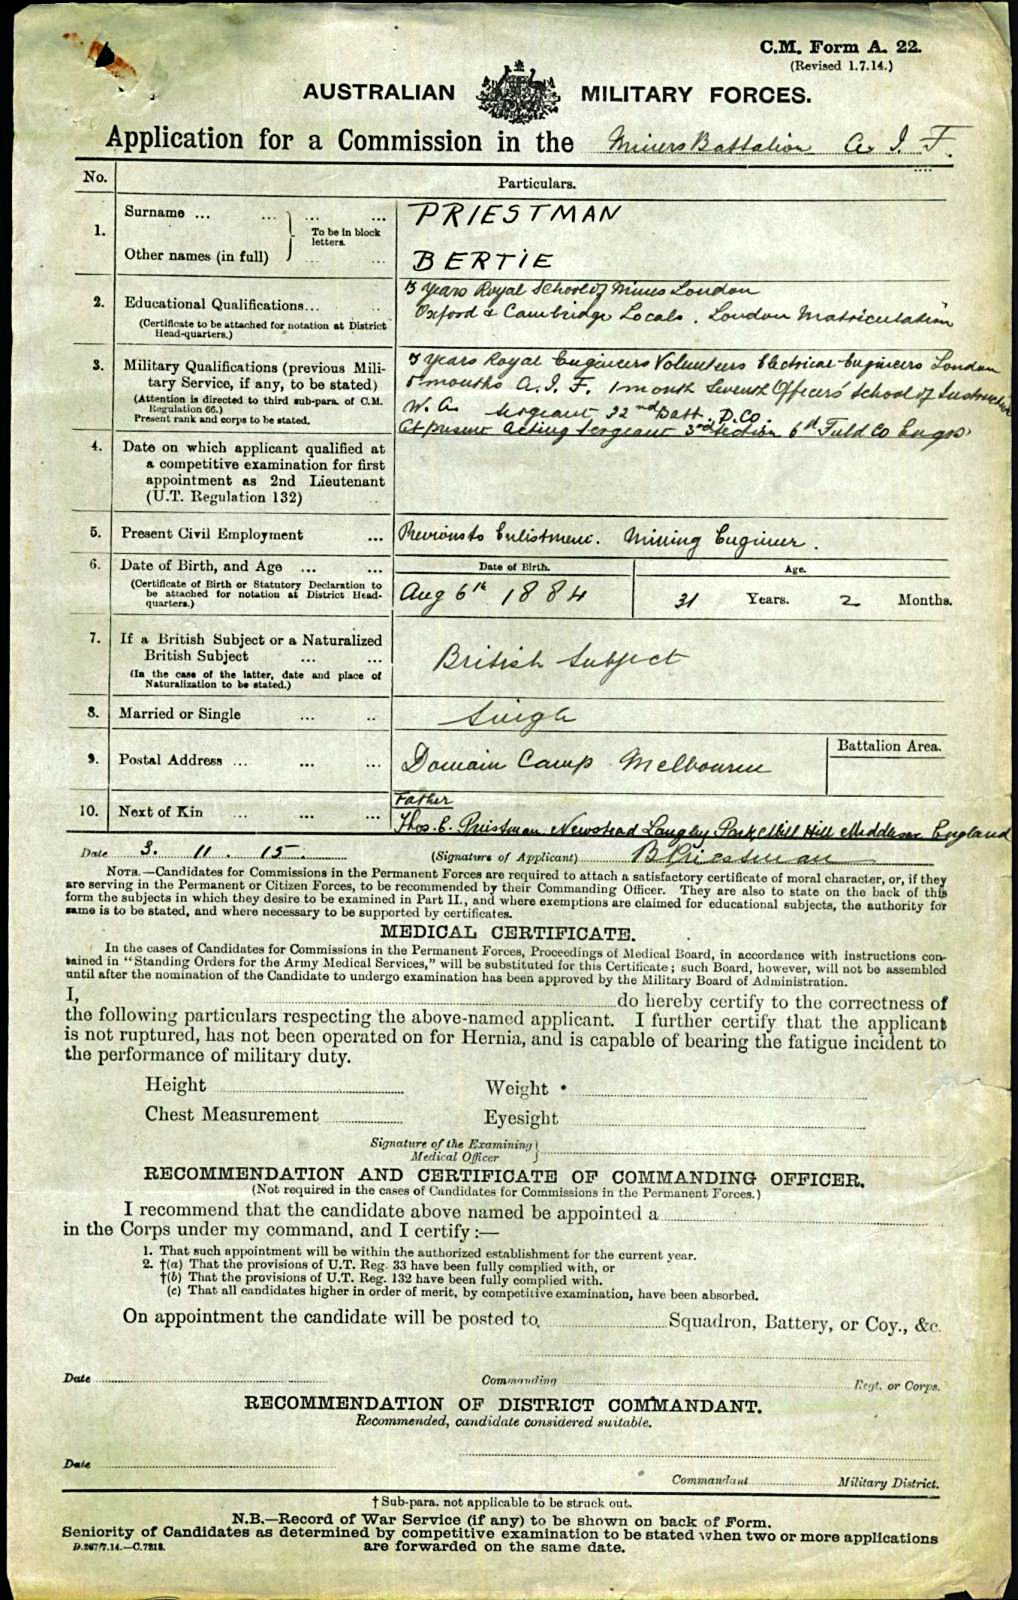 C.M. Form A. 22.
(Revised 1.7.14.)
AUSTRALIAN MILITARY FORCES.
Application for a Commission in the Miners Battalion A. I. F.
No. Particulars.
1. Surname ... ... } ... ... PRIESTMAN
To be in block letters.
Other names (in full) ... ... BERTIE
2. Educational Qualifications... .. 3 years Royal School of Mines London
Oxford & Cambridge Locals. London Matriculation
(Certificate to be attached for notation at District
Head-quarters.)
3. Military Qualifications (previous Mili- years Royal Engineers Volunteers Electrical Engineers London
tary Service, if any, to be stated) months A. I. F. 1 month Seventh Officers' School of
(Attention is directed to third sub-para. of C.M.
Regulation 66.) W. A. Sergeant 32nd Batt. D. Co.
Present rank and corps to be stated. At present acting Sergeant 3rd Section 6th Field Co Engrs
4. Date on which applicant qualified at
a competitive examination for first
appointment as 2nd Lieutenant
(U.T. Regulation 132) ..
5. Present Civil Employment ... Previous to Enlistment. Mining Engineer.
6. Date of Birth, and Age ... ... Date of Birth. Age.
(Certificate of Birth or Statutory Declaration to
be attached for notation at District Head-
quarters.) Aug 6th 1884 31 Years. 2 Months.
7. If a British Subject or a Naturalized
British Subject ... ... British Subject
(In the case of the latter, date and place of
Naturalization to be stated.)
8. Married or Single ... .. Single
9. Postal Address ... ... ... Domain Camp Melbourne Battalion Area.
Father
10. Next of Kin ... ... ... Thos. E. Priestman Newstead Langley Park Mill Hill Middlesex England
Date 3. 11. 15. (Signature of Applicant) B Priestman
NOTA.—Candidates for Commissions in the Permanent Forces are required to attach a satisfactory certificate of moral character, or, if they
are serving in the Permanent or Citizen Forces, to be recommended by their Commanding Officer. They are also to state on the back of this
form the subjects in which they desire to be examined in Part II., and where exemptions are claimed for educational subjects, the authority for
same is to be stated, and where necessary to be supported by certificates.
MEDICAL CERTIFICATE.
In the cases of Candidates for Commissions in the Permanent Forces, Proceedings of Medical Board, in accordance with instructions con-
tained in "Standing Orders for the Army Medical Services," will be substituted for this Certificate; such Board, however, will not be assembled
until after the nomination of the Candidate to undergo examination has been approved by the Military Board of Administration.
I, do hereby certify to the correctness of
the following particulars respecting the above-named applicant. I further certify that the applicant
is not ruptured, has not been operated on for Hernia, and is capable of bearing the fatigue incident to
the performance of military duty.
Height Weight
Chest Measurement Eyesight
Signature of the Examining }
Medical Officer
RECOMMENDATION AND CERTIFICATE OF COMMANDING OFFICER.
(Not required in the cases of Candidates for Commissions in the Permanent Forces.)
I recommend that the candidate above named be appointed a
in the Corps under my command, and I certify:—
1. That such appointment will be within the authorized establishment for the current year.
2. †(a) That the provisions of U.T. Reg. 33 have been fully complied with, or
†(b) That the provisions of U.T. Reg. 132 have been fully complied with.
(c) That all candidates higher in order of merit, by competitive examination, have been absorbed.
On appointment the candidate will be posted to Squadron, Battery, or Coy., &c.
Date Commanding Regt. or Corps.
RECOMMENDATION OF DISTRICT COMMANDANT.
Recommended, candidate considered suitable.
Date
Commandant Military District.
† Sub-para. not applicable to be struck out.
N.B.—Record of War Service (if any) to be shown on back of Form.
Seniority of Candidates as determined by competitive examination to be stated when two or more applications
are forwarded on the same date.
D.267/7.14.—C.7212.